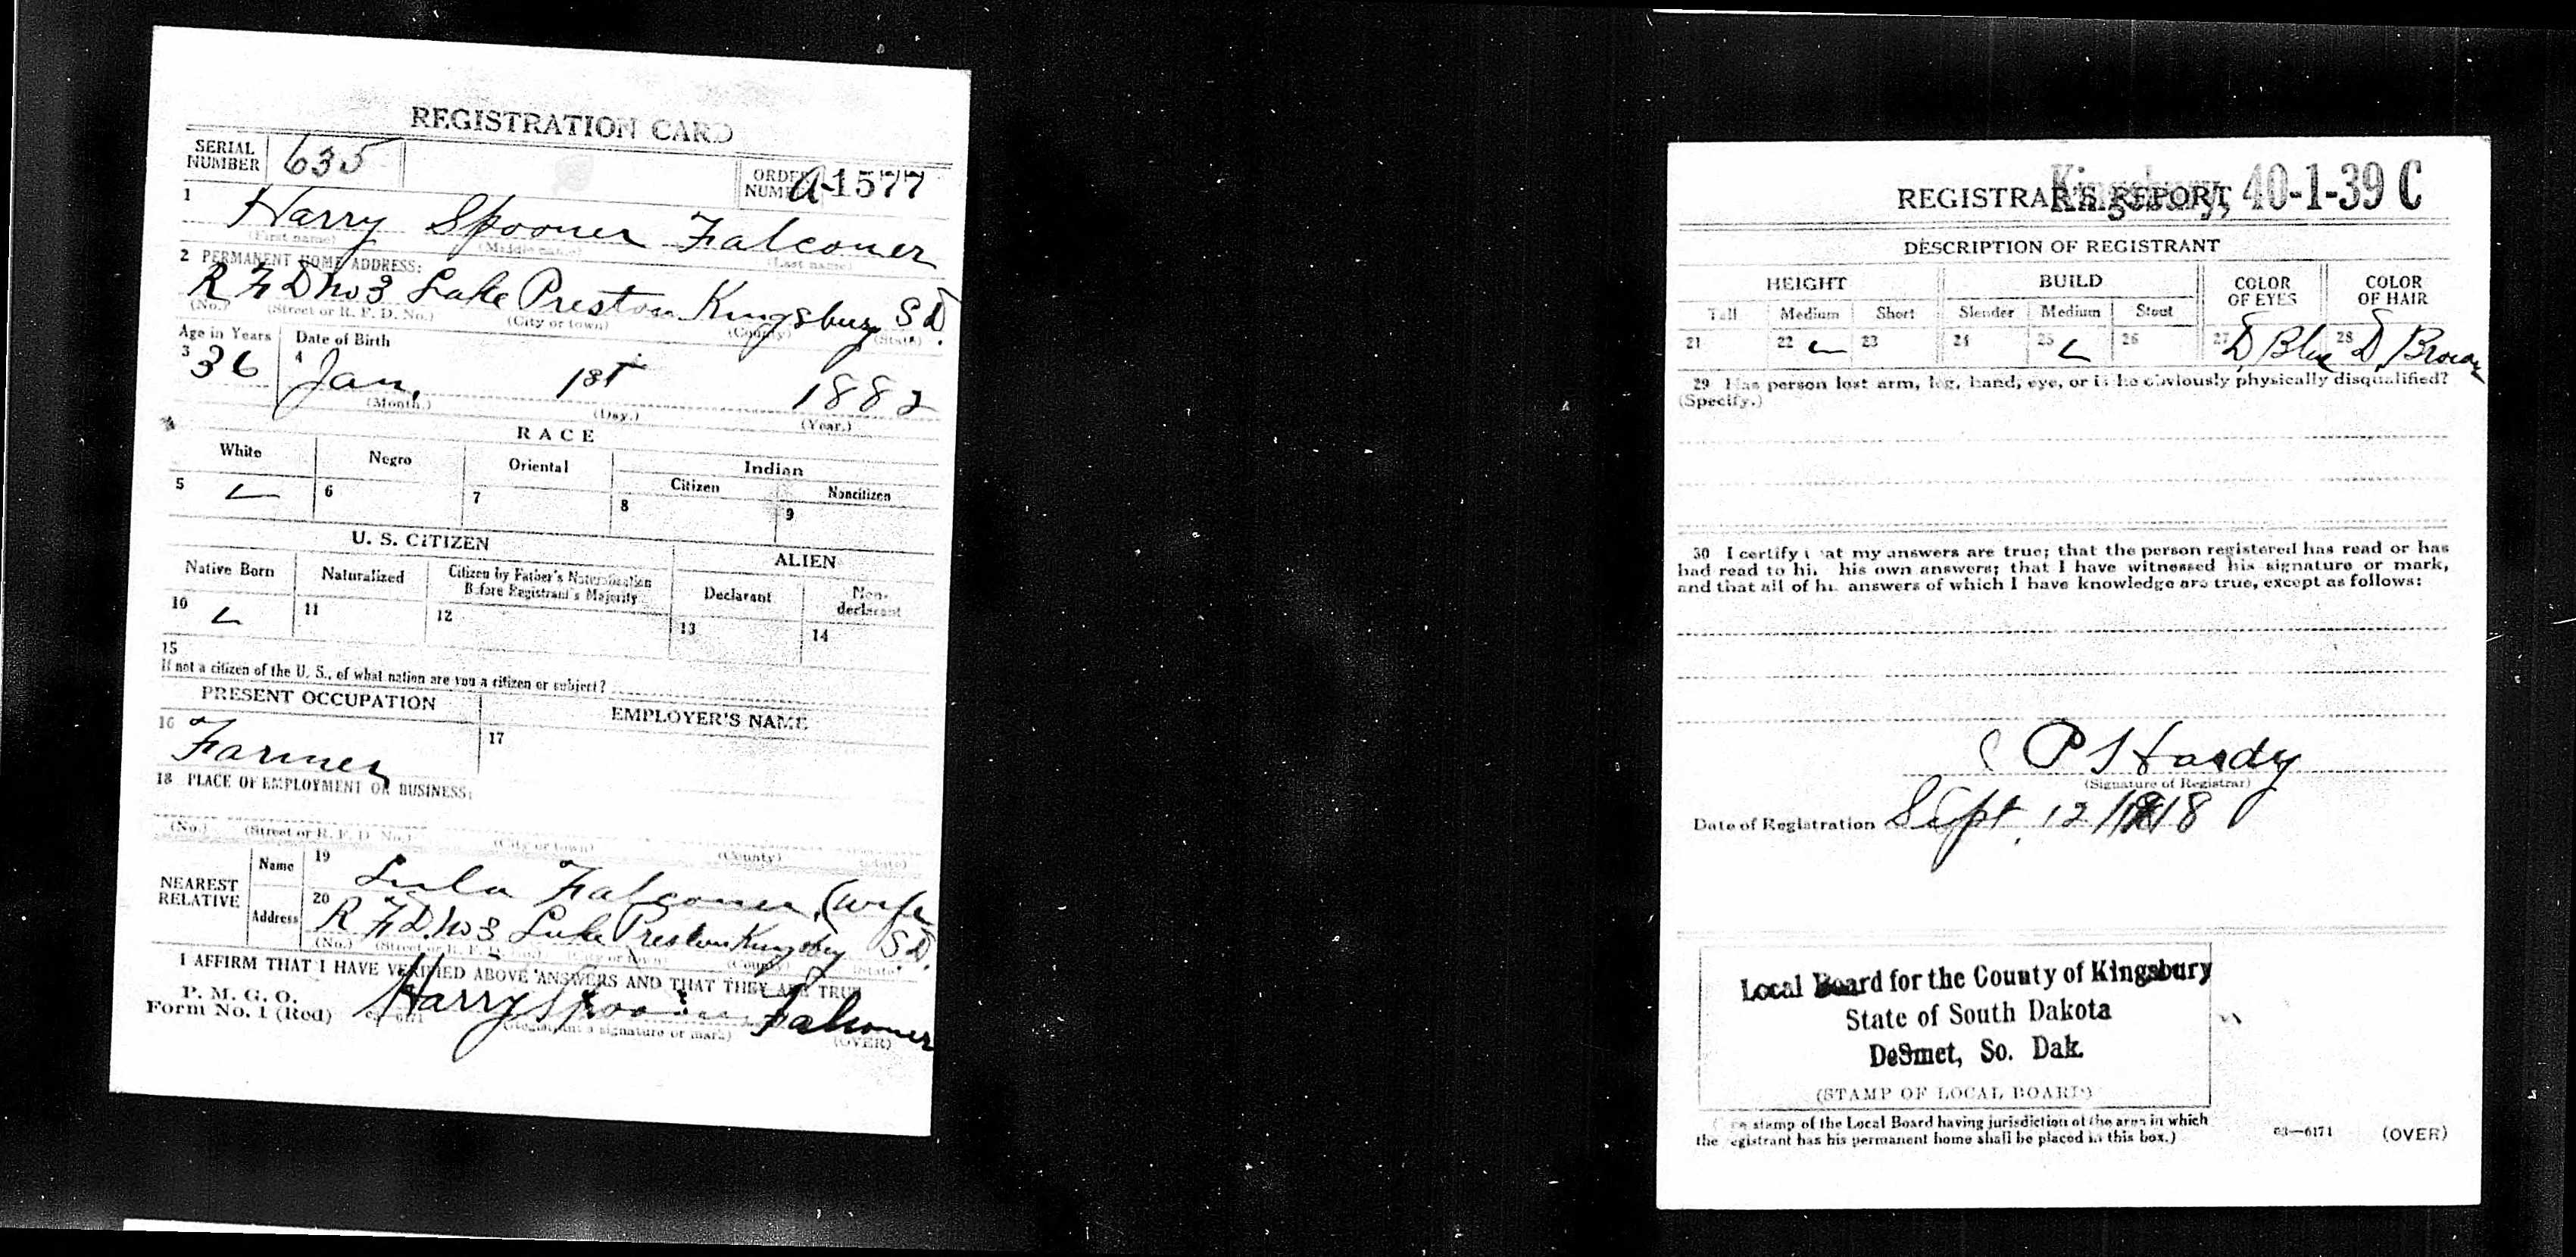 REGISTRATION CARD
SERIAL NUMBER 635 ORDER NUMBER A-1577
1 Harry Spooner Falconer
(First name) (Middle name) (Last name)
2 PERMANENT HOME ADDRESS:
R F D No 3 Lake Preston Kingsbury S D.
(No.) (Street or R. F. D. No.) (City or town) (County) (State)
Age in Years Date of Birth
3 36 4 Jan. 1st 1882
(Month.) (Day.) (Year.)
RACE
White Negro Oriental Indian
Citizen Noncitizen
5 6 7 8 9
U. S. CITIZEN ALIEN
Native Born Naturalized Citizen by Father's Naturalization Before Registrant's Majority Declarant Non-declarant
10 11 12 13 14
15
If not a citizen of the U. S., of what nation are you a citizen or subject?
PRESENT OCCUPATION EMPLOYER'S NAME
16 Farmer 17
18 PLACE OF EMPLOYMENT OR BUSINESS:
(No.) (Street or R. F. D. No.) (City or town) (County) (State)
NEAREST RELATIVE
Name 19 Lula Falconer, (wife
Address 20 R F D. No 3 Lake Preston Kingsbury S D.
(No.) (Street or R. F. D. No.) (City or town) (County) (State)
I AFFIRM THAT I HAVE VERIFIED ABOVE ANSWERS AND THAT THEY ARE TRUE
P. M. G. O.
Form No. 1 (Red) Harry Spooner Falconer
(Registrant's signature or mark) (OVER)
REGISTRAR'S REPORT Kingsbury, 40-1-39 C
DESCRIPTION OF REGISTRANT
HEIGHT BUILD COLOR OF EYES COLOR OF HAIR
Tall Medium Short Slender Medium Stout
21 22 23 24 25 26 27 D Blue 28 D Brown
29 Has person lost arm, leg, hand, eye, or is he obviously physically disqualified?
(Specify.)
30 I certify that my answers are true; that the person registered has read or has
had read to him his own answers; that I have witnessed his signature or mark,
and that all of his answers of which I have knowledge are true, except as follows:
C P S Hardy
(Signature of Registrar)
Date of Registration Sept. 12/1918
Local Board for the County of Kingsbury
State of South Dakota
DeSmet, So. Dak.
(STAMP OF LOCAL BOARD)
(The stamp of the Local Board having jurisdiction of the area in which
the registrant has his permanent home shall be placed in this box.)
03—6171 (OVER)